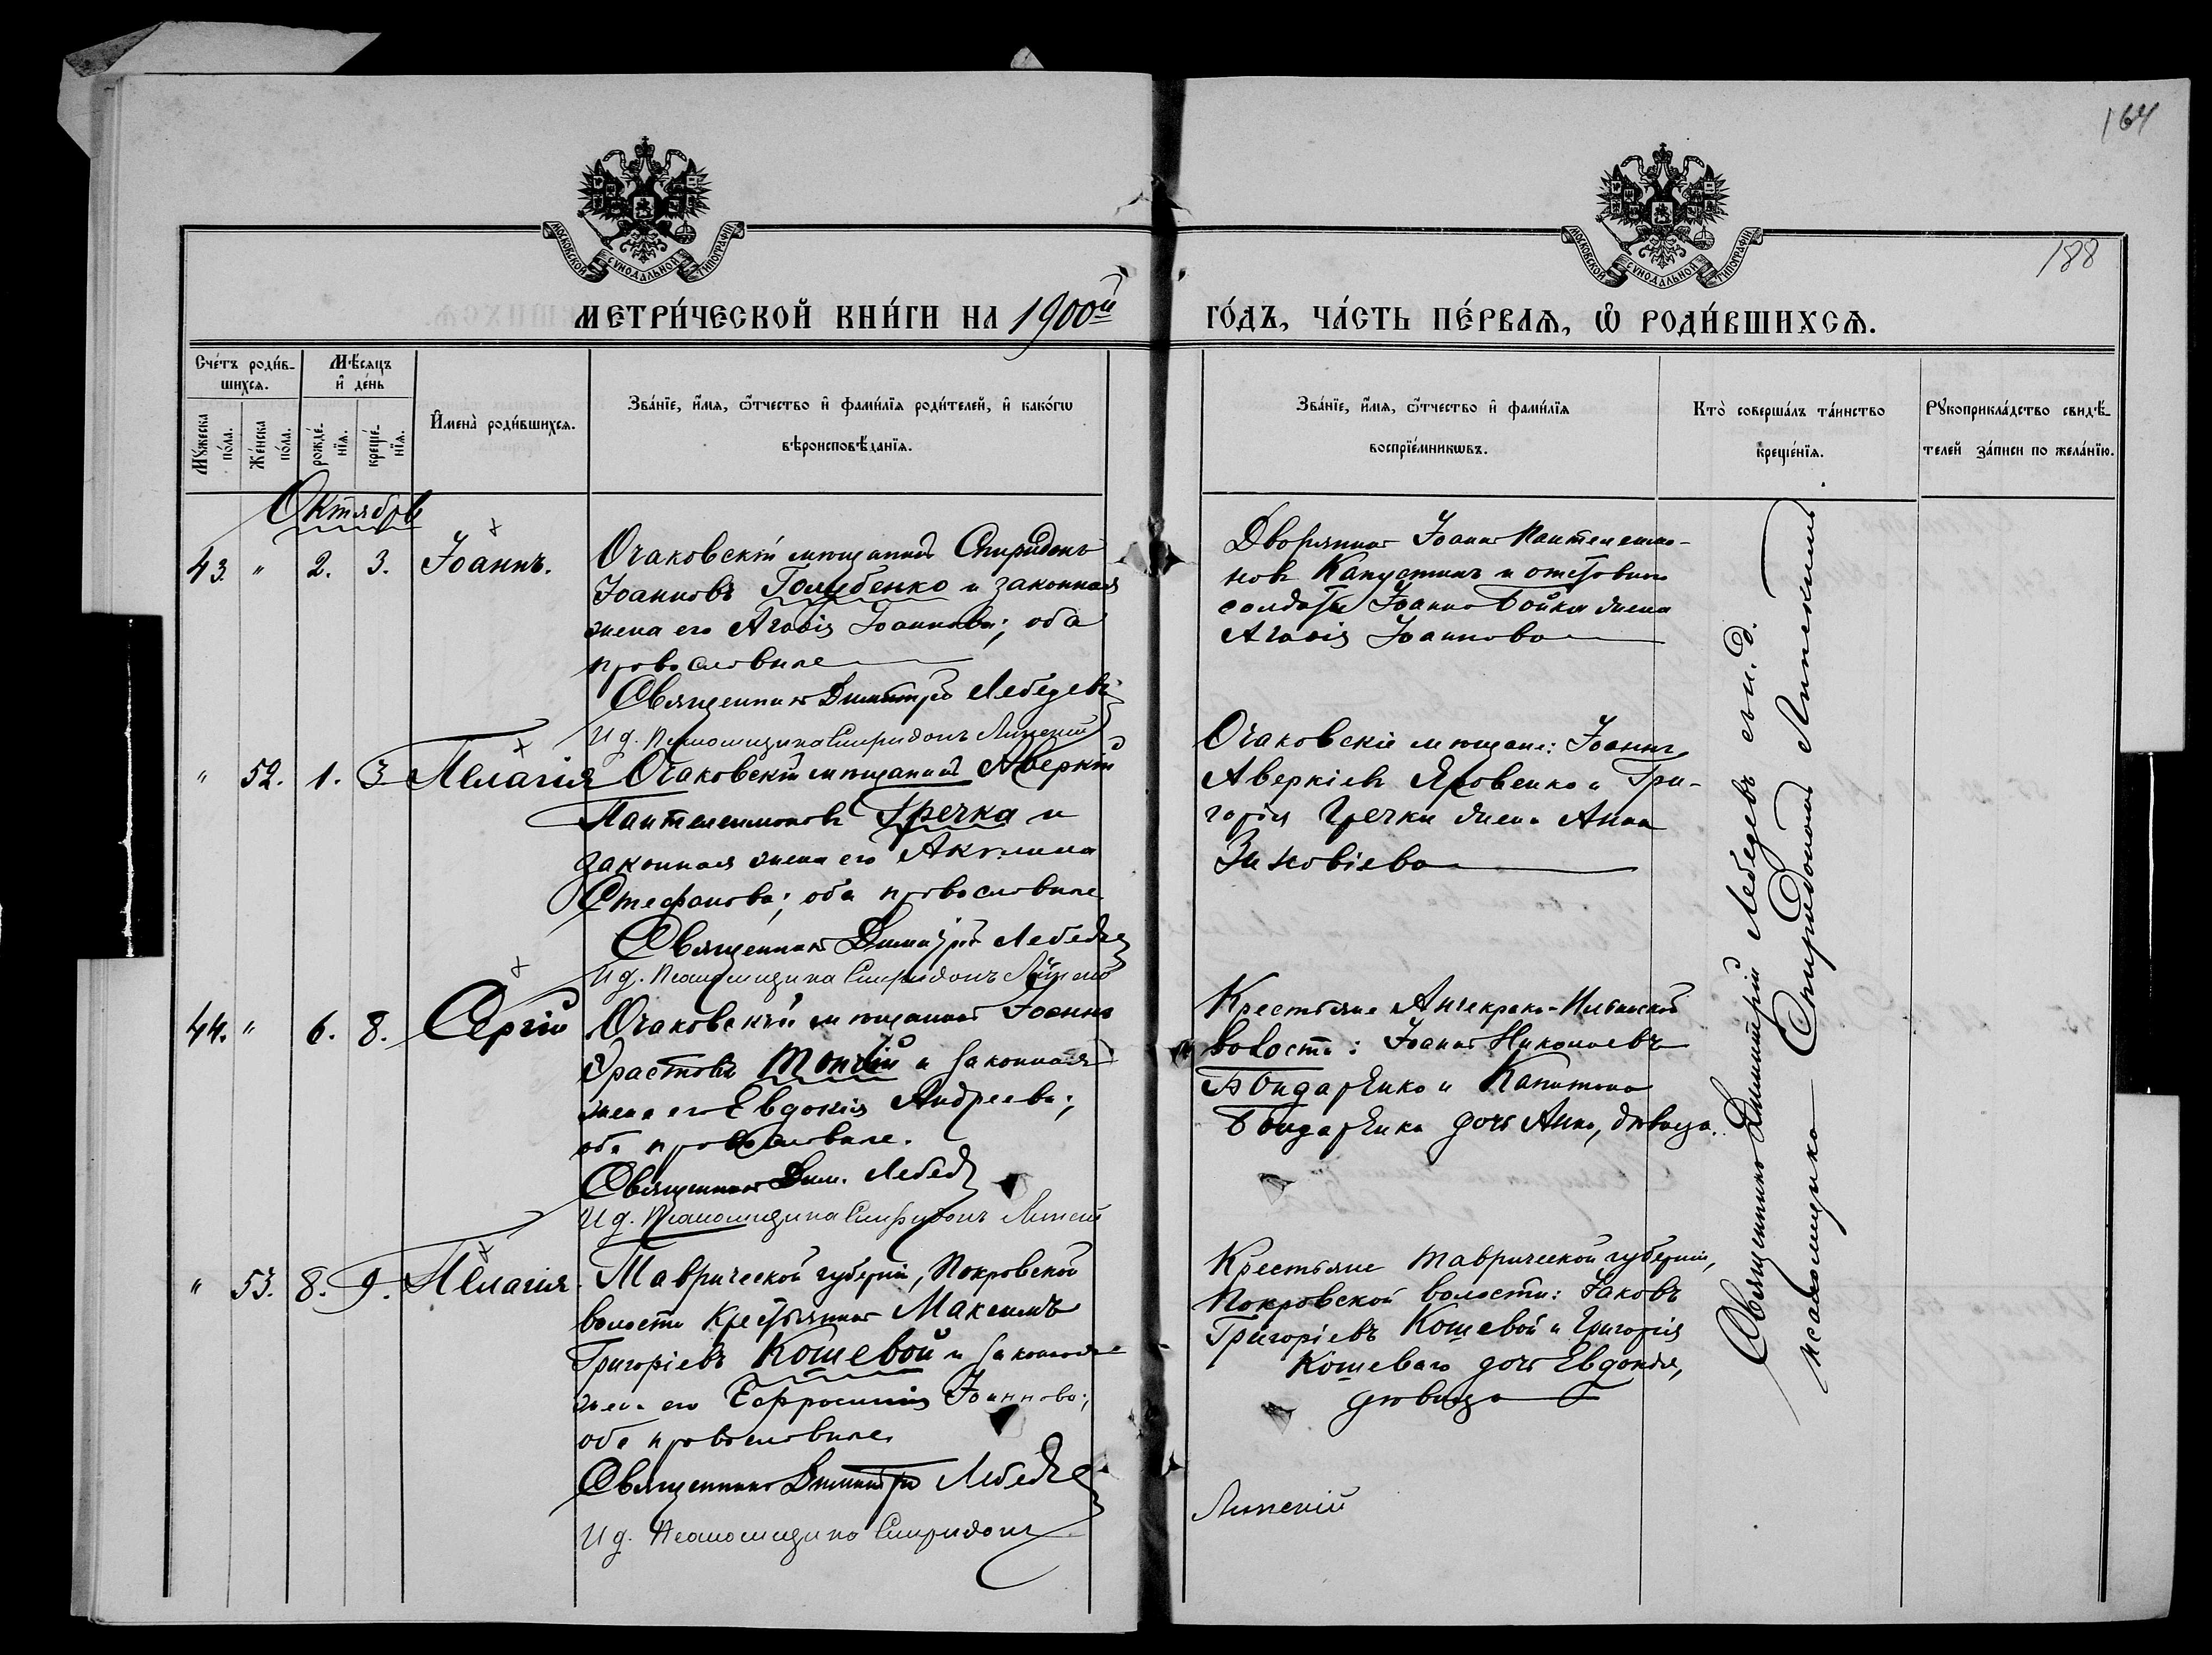 164
188
МОСКОВСКОЙ СѴНОДАЛЬНОЙ ТИПОГРАФІИ
МОСКОВСКОЙ СѴНОДАЛЬНОЙ ТИПОГРАФІИ
МЕТРИ́ЧЕСКОЙ КНИ́ГИ НА 1900й ГО́ДЪ, ЧА́СТЬ ПЕ́РВАѦ, Ѡ҆ РОДИ́ВШИХСѦ.
Сче́тъ роди́в-
шихсѧ.
Мꙋ́жеска
по́ла.
Же́нска
по́ла.
Мѣ́сѧцъ
и҆ де́нь
рожде́-
нїѧ.
креще́-
нїѧ.
И҆мена̀ роди́вшихсѧ.
Зва́нїе, и҆́мѧ, ѻ҆́тчество и҆ фами́лїѧ роди́телей, и҆ како́гѡ
вѣроисповѣ́данїѧ.
Зва́нїе, и҆́мѧ, ѻ҆́тчество и҆ фами́лїѧ
воспрїе́мникѡвъ.
Кто̀ соверша́лъ та́инство
креще́нїѧ.
Рꙋкоприкла́дство свидѣ́-
телей за́писи по жела́нїю.
Октябрь
43. " 2. 3. Іоаннъ.
Очаковскій мѣщанинъ Спиридонъ
Іоанновъ Голубенко и законная
жена его Агафія Іоаннова; оба
православные
Священникъ Димитрій Лебедевъ
И д. Псаломщика Спиридонъ Липскій
Дворянинъ Іоаннъ Пантелеимо-
новъ Капустинъ и отставного
солдата Іоанна Бойка жена
Агафія Іоаннова
" 52. 1. 3. Пелагія
Очаковскій мѣщанинъ Аверкій
Пантелеимоновъ Гречка и
законная жена его Акилина
Стефанова; оба православные
Священникъ Димитрій Лебедевъ
И д. Псаломщика Спиридонъ Липскій
Очаковскіе мѣщане: Іоаннъ
Аверкіевъ Яровенко и Гри-
горія Гречки жена Анна
Зиновіева
44. " 6. 8. Сергій
Очаковскій мѣщанинъ Іоаннъ
Эрастовъ и законная
жена его Евдокія Андреева;
оба православные.
Священникъ Дим. Лебедевъ
И д. Псаломщика Спиридонъ Липскій
Крестьяне Анчекрако-Ильинской
волости: Іоаннъ Николаевъ
Бондаренко и Капитона
Бондаренка дочь Анна, дѣвица.
" 53. 8. 9. Пелагія
Таврической губерніи, Покровской
волости крестьянинъ Максимъ
Григоріевъ Кошевой и законная
жена его Евфросинія Іоаннова;
оба православные
Священникъ Димитрій Лебедевъ
И д. Псаломщика Спиридонъ
Липскій
Крестьяне Таврической губерніи,
Покровской волости: Іаковъ
Григоріевъ Кошевой и Григорія
Кошеваго дочь Евдокія,
дѣвица
Священникъ Димитрій Лебедевъ съ и. д.
псаломщика Спиридономъ Липскимъ.